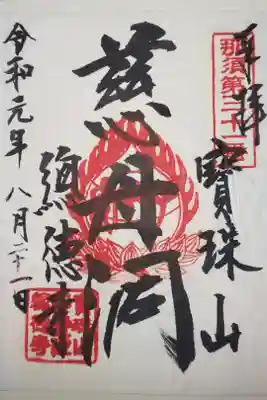 奉拝
那須第二十二番
寳珠山
慈母閣
總徳寺
令和元年八月二十一日